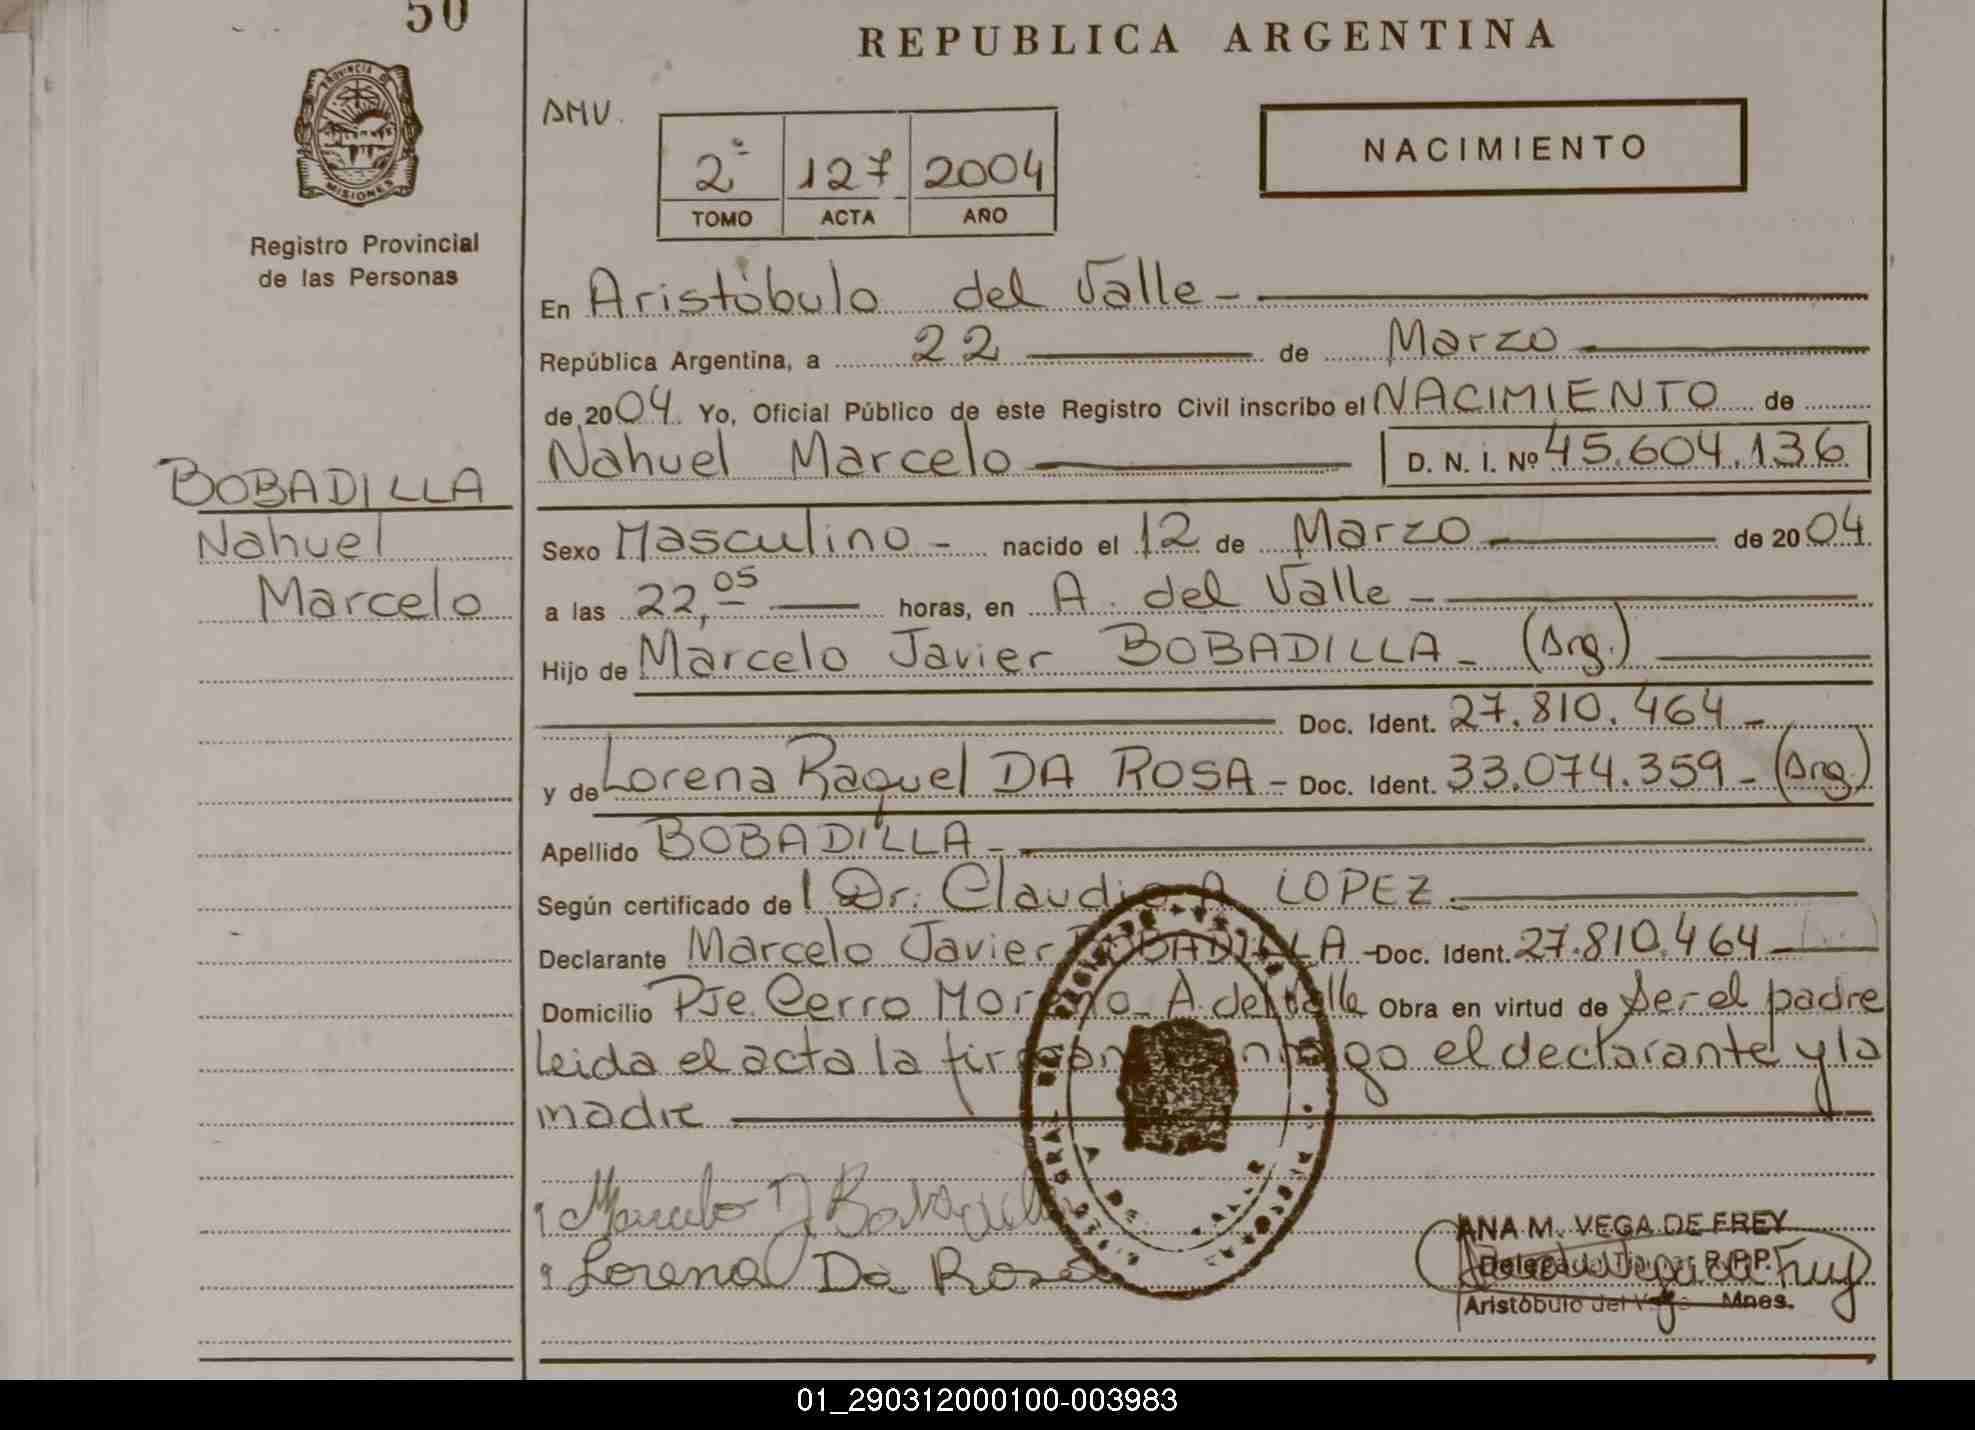 50
REPUBLICA ARGENTINA
PROVINCIA DE
MISIONES
Registro Provincial
de las Personas
AMV.
2º 127 2004
TOMO ACTA AÑO
NACIMIENTO
En Aristóbulo del Valle
República Argentina, a 22 de Marzo
de 2004. Yo, Oficial Público de este Registro Civil inscribo el NACIMIENTO de
Nahuel Marcelo D. N. I. Nº 45.604.136
BOBADILLA
Nahuel
Marcelo
Sexo Masculino - nacido el 12 de Marzo de 2004.
a las 22,05 horas, en A. del Valle
Hijo de Marcelo Javier BOBADILLA - (Arg.)
Doc. Ident. 27.810.464 -
y de Lorena Raquel DA ROSA - Doc. Ident. 33.074.359 - (Arg.)
Apellido BOBADILLA -
Según certificado de Dr. Claudio A. LOPEZ
Declarante Marcelo Javier BOBADILLA - Doc. Ident. 27.810.464
Domicilio Pje. Cerro Moreno - A. del Valle Obra en virtud de Ser el padre
leida el acta la firman conmigo el declarante y la
madre
Marcelo J Bobadilla
Lorena Da Rosa
ANA M. VEGA DE FREY
Delegada Titular R.P.P.
Aristóbulo del Valle Mnes.
01_290312000100-003983